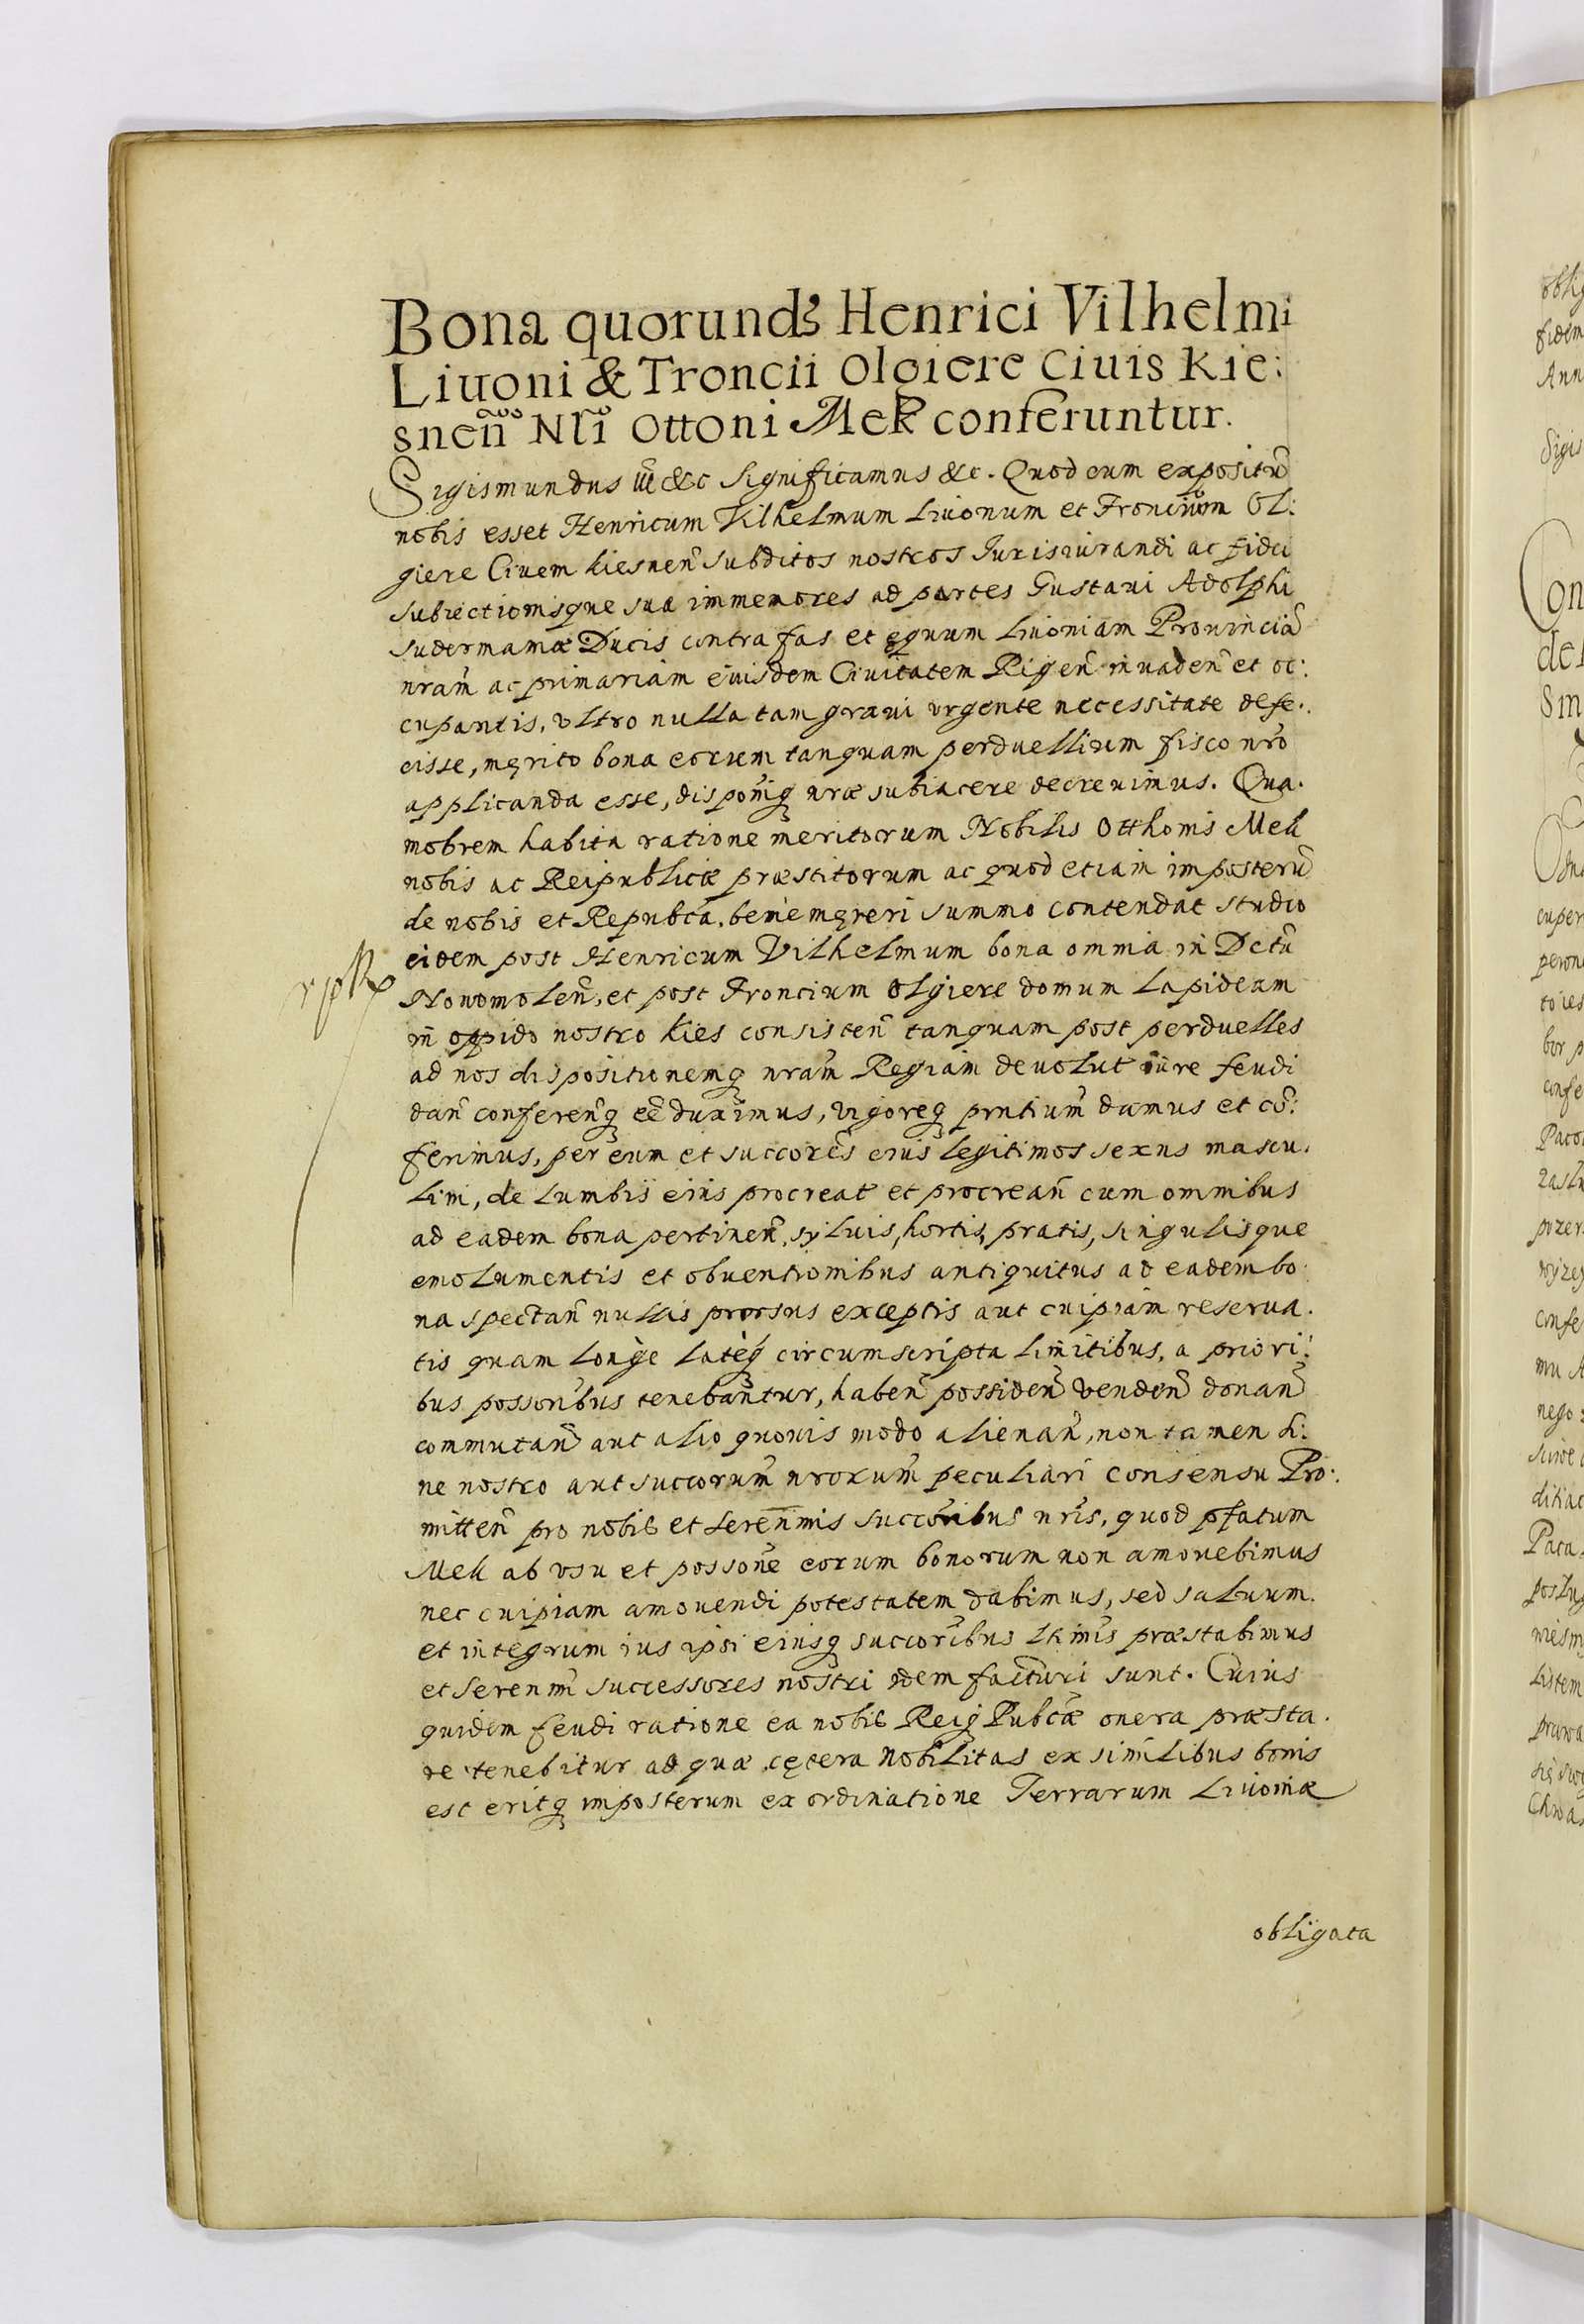 Bona quorundā Henrici Vilhelmi
Liuoni & Troncii Olgiere Ciuis Kie:
snen̄ Nlī Ottoni Mek conferuntur.
Sigismundus iii &c Significamus &c. Quod cum expositū
nobis esset Henricum Vilhelmum Liuonum et Froncium Ol:
giere Ciuem kiesnen̄ subditos nostros Jurisiurandi ac fidei
subiectionisque suæ immemores ad partes Gustaui Adolphi
sudermaniæ Ducis contra fas et ęquum Liuoniam Prouinciā
nrām ac primariam eiusdem Ciuitatem Rigen̄ inuaden̄ et oc:
cupantis, vltro nulla tam graui vrgente necessitate defe:
cisse, męrito bona eorum tanquam perduellium fisco nrō
applicanda esse, disponīq nræ subiacere decreuimus. Qua:
mobrem habita ratione meritorum Nobilis Otthonis Mek
nobis ac Reipublicæ præstitorum ac quod etiam imposterū
de nobis et Repubca, bene męreri summo contendat studio
eidem post Henricum Vilhelmum bona omnia in Dctū
Nowomolen̄, et post Froncium Olgiere domum lapideam
in oppido nostro kies consisten̄ tanquam post perduelles
ad nos dispositionemq nrām Regiam deuolut iure feudi
dan̄ conferen̄q eē duximus, vigoreq pntium̄ damus et cō:
ferimus, per eum et succorēs eius legitimos sexus mascu:
lini, de lumbis eius procreat̄ et procrean̄ cum omnibus
ad eadem bona pertinen̄, syluis, hortis, pratis, singulisque
emolumentis et obuentionibus antiquitus ad eadem bo:
na spectan̄ nullis prorsus exceptis aut cuipiam reserua:
tis quam longè latèq circumscripta limitibus, a priori:
bus possoribus tenebantur, haben̄ possiden̄ venden̄ donan̄
commutan̄ aut alio quouis modo alienan̄, non tamen si:
ne nostro aut succorum̄ nrorum̄ peculiari consensu Pro:
mitten̄ pro nobis et serenm̄is succoribus nrīs, quod pfatum
Mek ab vsu et possonē eorum bonorum non amouebimus
nec cuipiam amouendi potestatem dabimus, sed saluum
et integrum ius ipsi eiusq succoribus ltimis præstabimus
et serenmī successores nostri idem facturi sunt. Cuius
quidem feudi ratione ea nobis Reiq Pubcæ onera præsta:
re tenebitur ad quæ cętera nobilitas ex similibus bonis
est eritq imposterum ex ordinatione Terrarum Liuoniæ
obligata